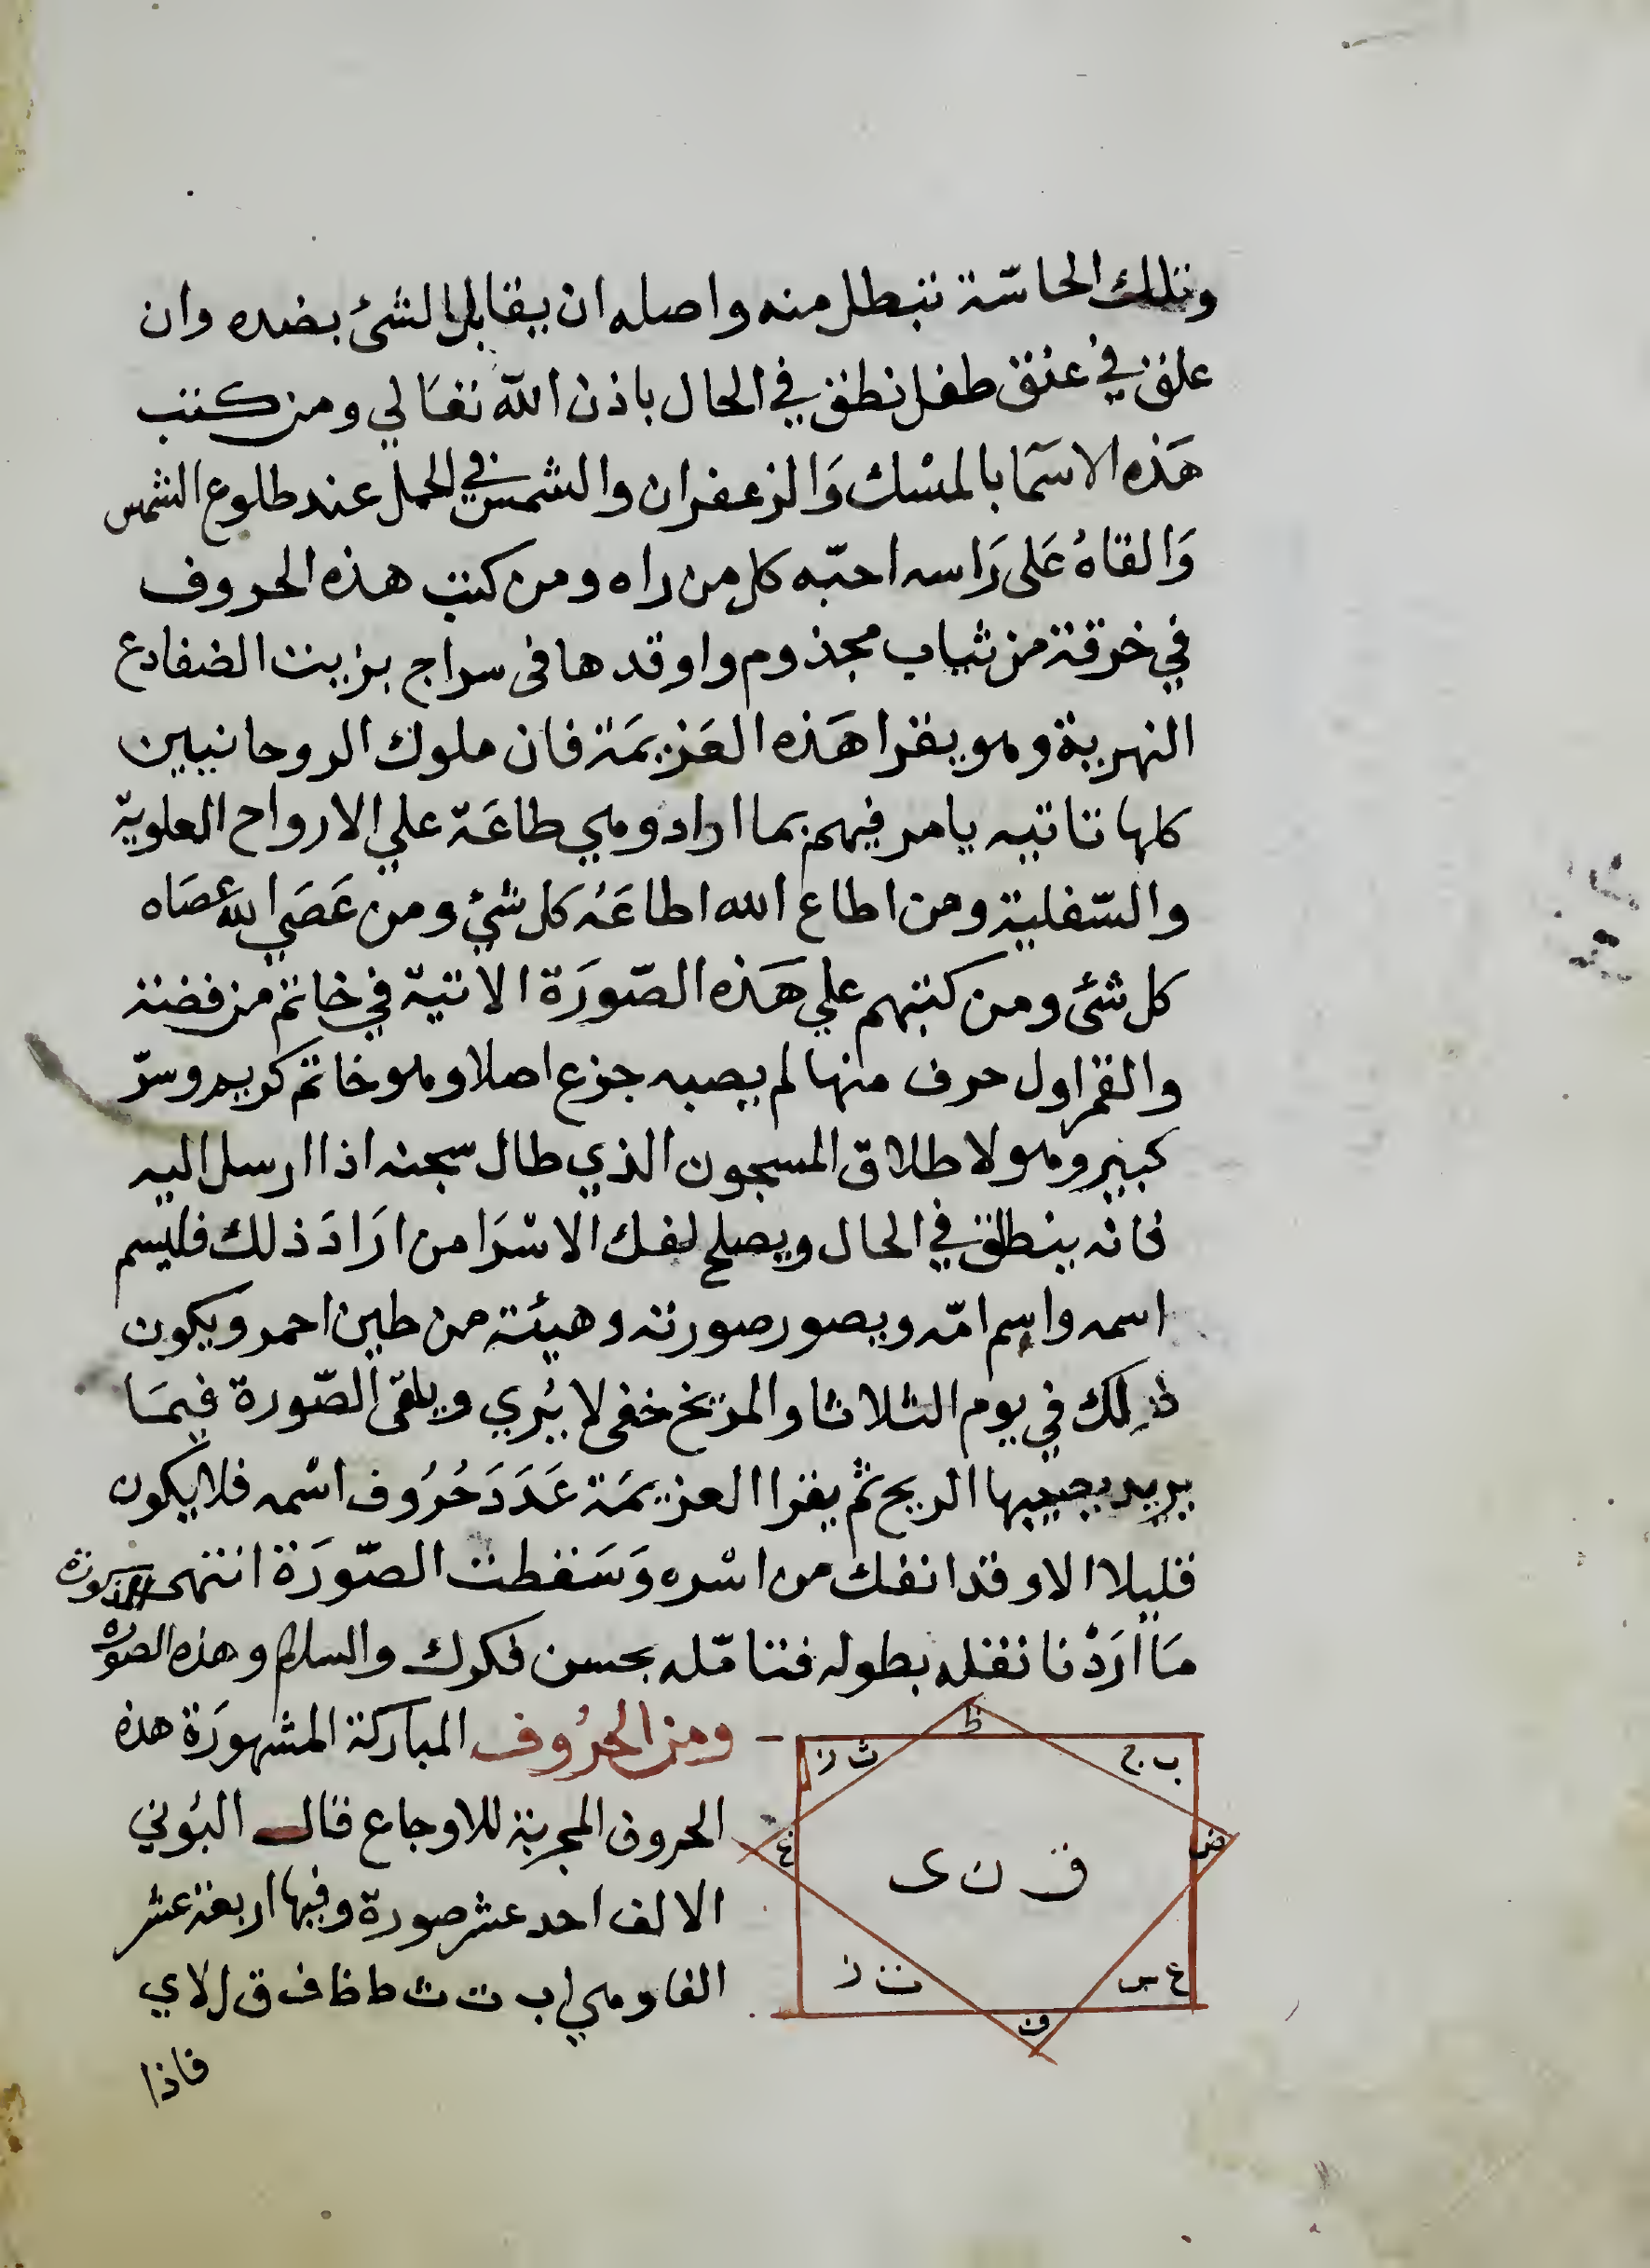 وتلك الحاسّة تبطل منه واصله ان يقابل الشئ بضده وان
علق في عنق طفل نطق في الحال باذن الله تعالي ومن كتب
هَذه الاسمَا بالمسْك وَالزعفران والشمس في الحمل عند طلوع الشمس
وَالقاهُ عَلى رَاسه احبّه كل من راه ومن كتب هذه الحروف
في خرقة من ثياب مجذوم واوقدها فى سراج بزيت الضفادع
النهرية وهو يقرا هَذه العَزيمَة فان ملوك الروحانيين
كلها تاتيه يامر فيهم بما اراد وهي طاعَة علي الارواح العلويّة
والسّفلية ومن اطاع الله اطاعَهُ كل شيْ ومن عَصَي الله عصَاه
كل شئ ومن كتبهم علي هَذه الصّورَة الاتيّة في خاتم من فضة
والقمر اول حرف منها لم يصبه جزع اصلا وهو خاتم كريم وسرّ
كبير وهو لاطلاق المسجون الذي طال سجنه اذا ارسل اليه
فانه ينطلق في الحال ويصلح لفك الاسْرَا من ارَادَ ذلك فليسم
اسمه واسم امّه ويصور صورته وهيئة من طين احمر ويكون
ذلك في يوم الثلاثا والمريخ خفى لا يُري ويلقى الصّورة فيمَا
يريد يصيبها الريح ثم يقرا العزيمَة عَدَدَ حُرُوف اسْمه فلا يكون
قليلا الا وقد انفك من اسْره وَسَقطت الصّورَة انتهى
مَا ارَدْنا نقله بطوله فتامّله بحسن فكرك والسلام وهذه الصورة
ومن الحرُوف المباركة المشهورَة هذه
الحروف المجربة للاوجاع قال البُوني
الالف احد عشر صورة وفيها اربعة عشر
الفا وهي ا ب ت ث ط ظ ف ق ل لا ي
فاذا
ظ
ب ج
ث ز
ض
غ
ق ن ى
ع س
ت ز
ف